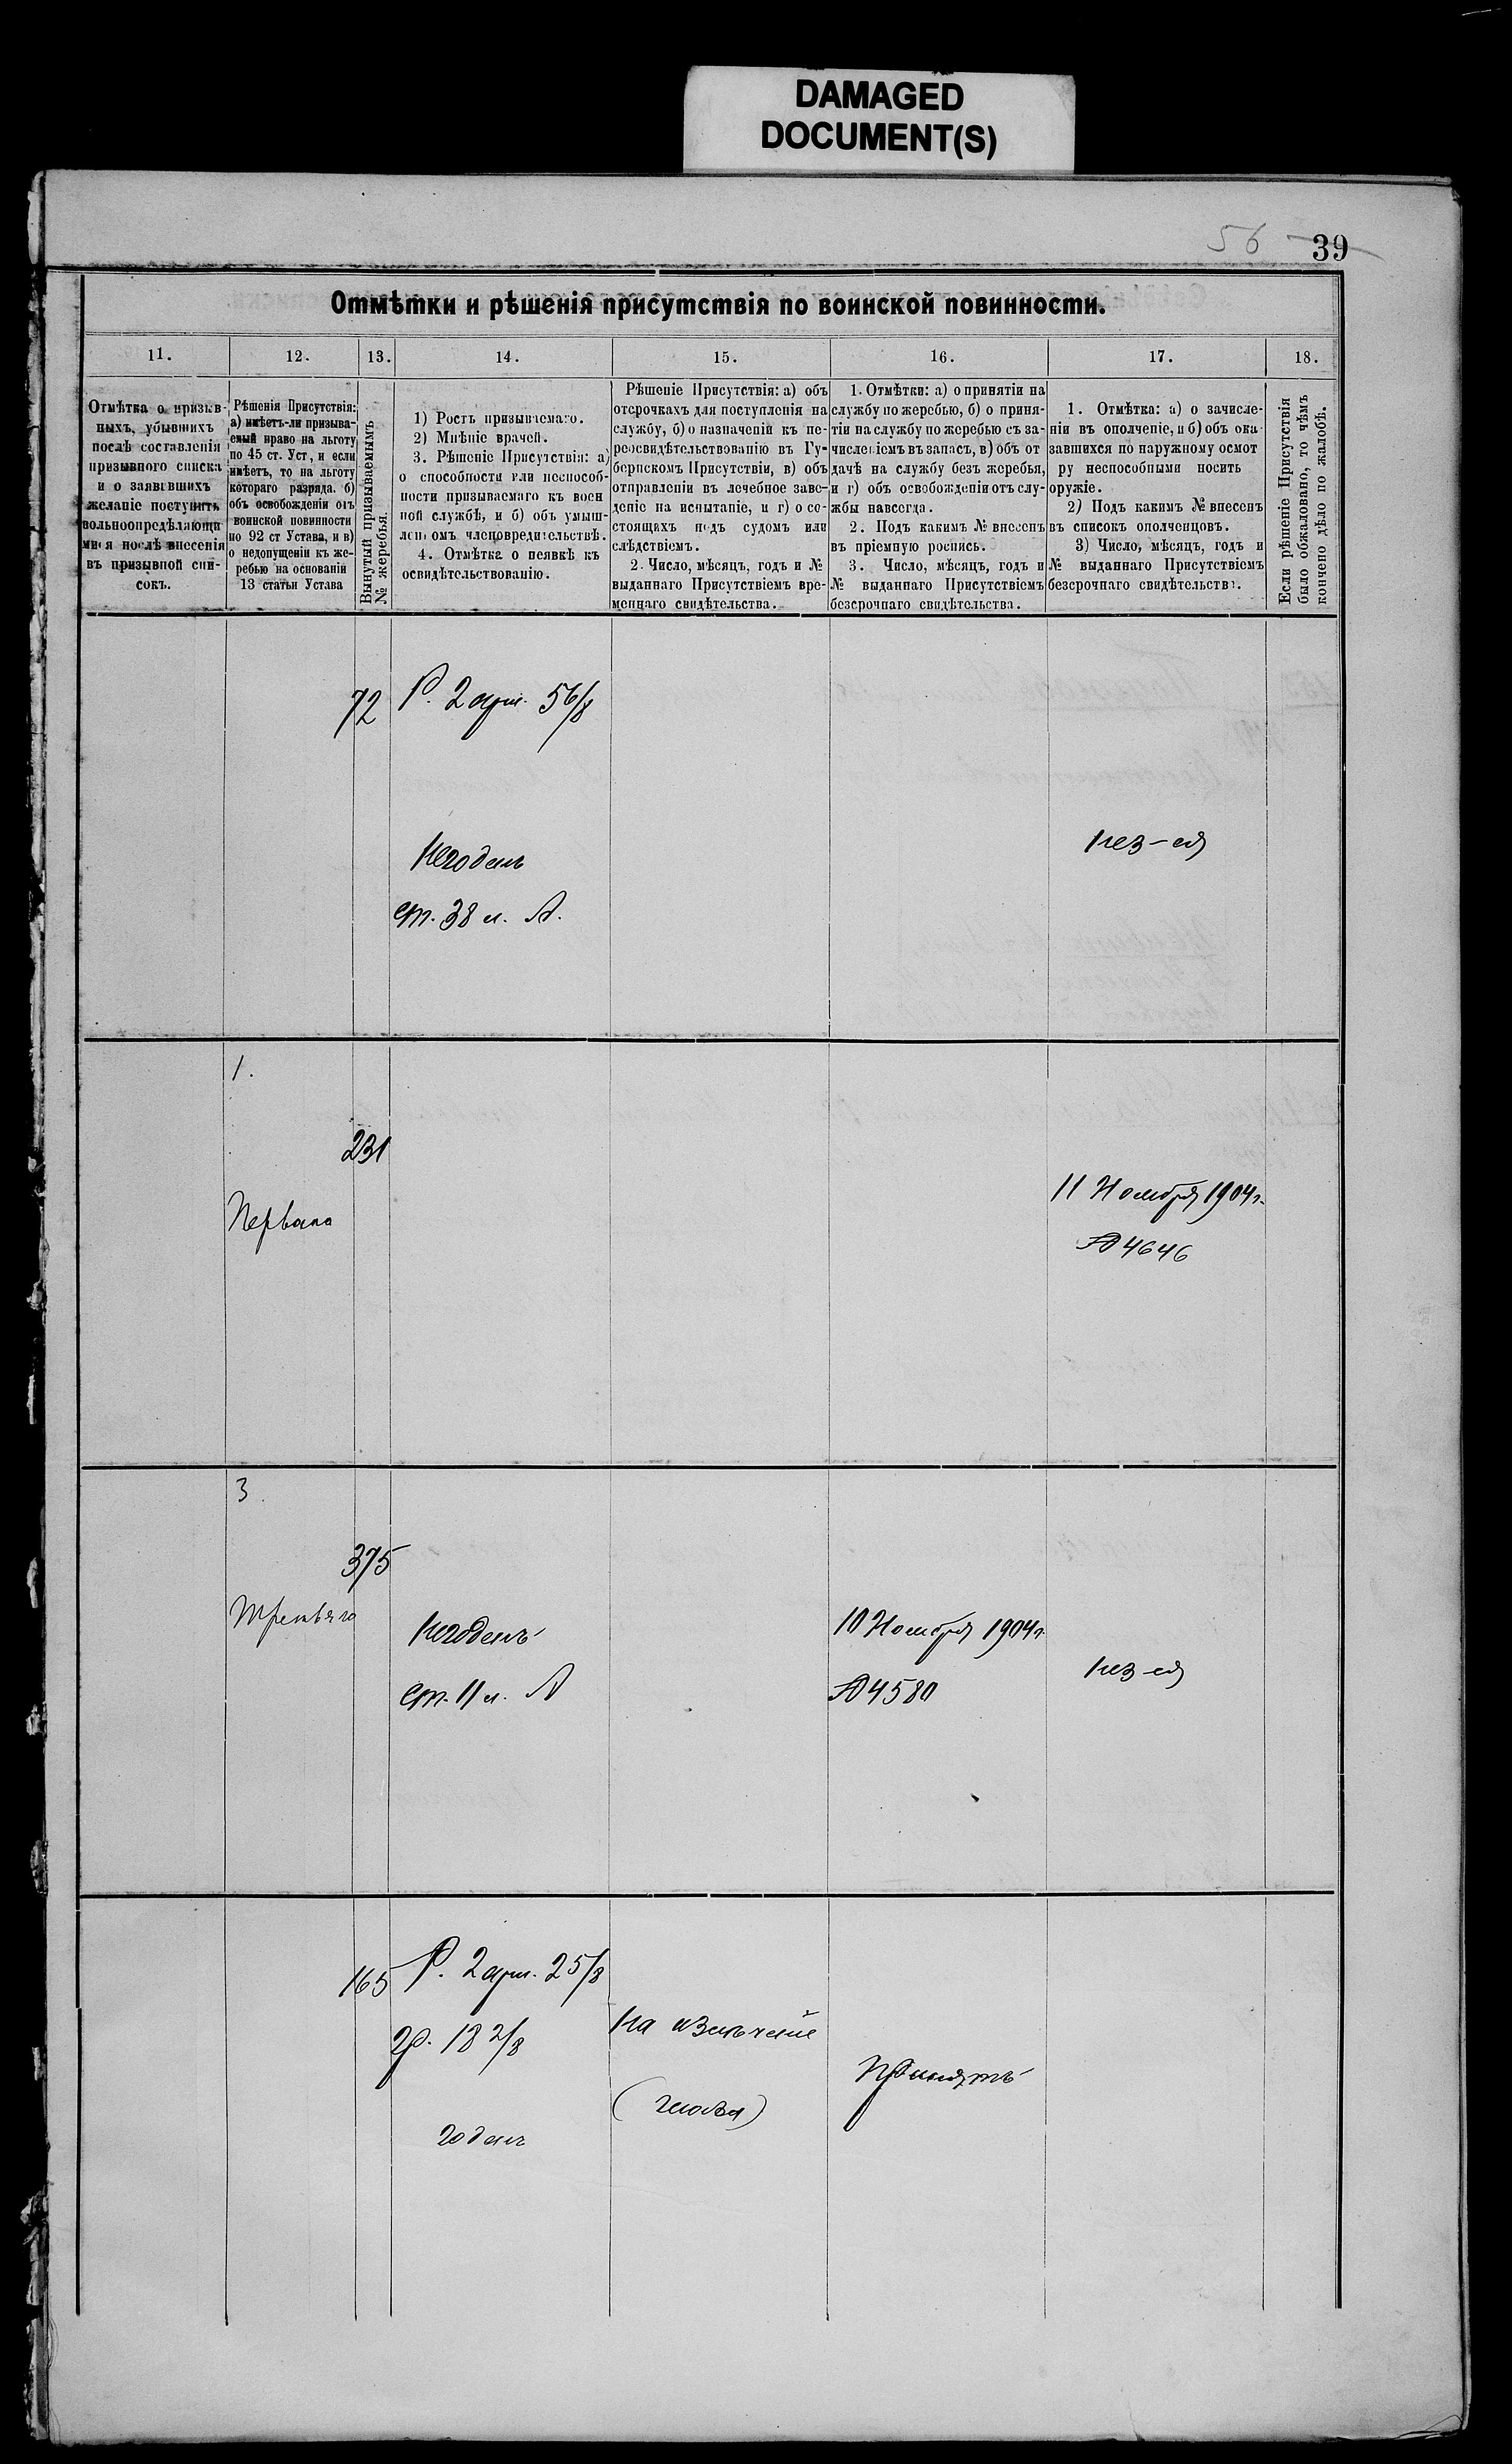 DAMAGED
DOCUMENT(S)
56 39
Отмѣтки и рѣшенія присутствія по воинской повинности.
11. 12. 13. 14. 15. 16. 17. 18.
Отмѣтка о призыв-
ныхъ, убывшихъ
послѣ составленія
призывного списка
и о заявившихъ
желаніе поступить
вольноопредѣляющи
мися послѣ внесенія
въ призывной спи-
сокъ.
Рѣшенія Присутствія:
а) имѣетъ-ли призыва-
емый право на льготу
по 45 ст. Уст, и если
имѣетъ, то на льготу
котораго разряда. б)
объ освобожденіи отъ
воинской повинности
по 92 ст Устава, и в)
о недопущеніи къ же-
ребью на основаніи
13 статьи Устава
Вынутый призываемымъ
№ жеребья.
1) Ростъ призываемаго.
2) Мнѣніе врачей.
3. Рѣшеніе Присутствія: а)
о способности или неспособ-
ности призываемаго къ воен
ной службѣ, и б) объ умыш-
ленномъ членовредительствѣ.
4. Отмѣтка о неявкѣ къ
освидѣтельствованію.
Рѣшеніе Присутствія: а) объ
отсрочкахъ для поступленія на
службу, б) о назначеніи къ пе-
реосвидѣтельствованію въ Гу-
бернскомъ Присутствіи, в) объ
отправленіи въ лечебное заве-
деніе на испытаніе, и г) о со-
стоящихъ подъ судомъ или
слѣдствіемъ.
2. Число, мѣсяцъ, годъ и №
выданнаго Присутствіемъ вре-
меннаго свидѣтельства.
1. Отмѣтки: а) о принятіи на
службу по жеребью, б) о приня-
тіи на службу по жеребью съ за-
численіемъ въ запасъ, в) объ от
дачѣ на службу безъ жеребья,
и г) объ освобожденіи отъ слу-
жбы навсегда.
2. Подъ какимъ № внесенъ
въ пріемную роспись.
3. Число, мѣсяцъ, годъ и
№ выданнаго Присутствіемъ
безсрочнаго свидѣтельства.
1. Отмѣтка: а) о зачисле-
ніи въ ополченіе, и б) объ ока
завшихся по наружному осмот
ру неспособными носить
оружіе.
2) Подъ какимъ № внесенъ
въ списокъ ополченцовъ.
3) Число, мѣсяцъ, годъ и
№ выданнаго Присутствіемъ
безсрочнаго свидѣтельств.
Если рѣшеніе Присутствія
было обжаловано, то чѣмъ
кончено дѣло по жалобѣ.
72
Р. 2 арш. 5 6/8
Негоденъ
ст. 38 л. А.
1.
231
Перваго
11 Ноября 1904 г.
№ 4646
3
375
Третьяго
Негоденъ
ст. 11 л. А
10 Ноября 1904 г.
№ 4580
165
Р. 2 арш. 2 5/8
гр. 18 2/8
годенъ
На
Принятъ